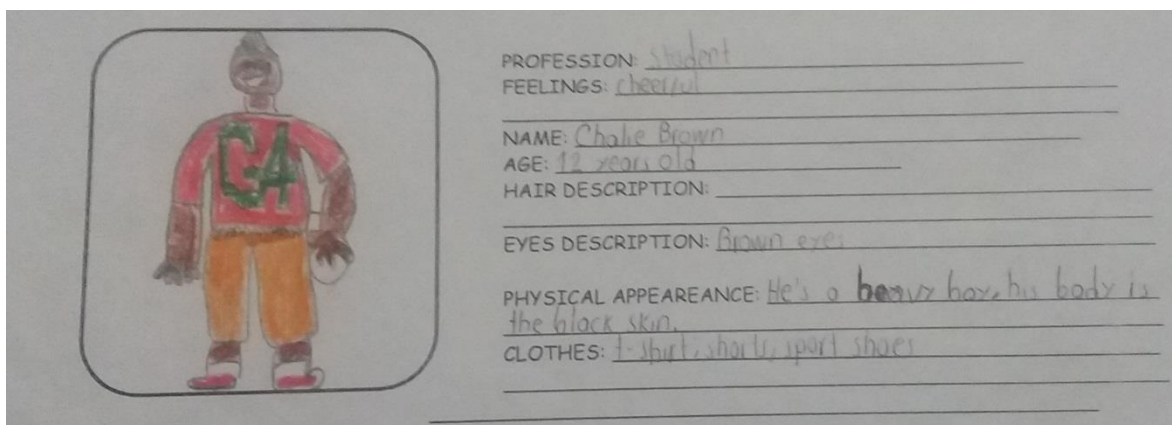 C4
PROFESSION: student
FEELINGS: cheerful
NAME: Chalie Brown
AGE: 12 years old
HAIR DESCRIPTION:
EYES DESCRIPTION: Brown eyes
PHYSICAL APPEAREANCE: He's a heavy boy, his body is
the black skin.
CLOTHES: t-shirt, shorts, sport shoes